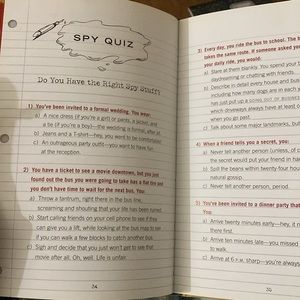 SPY QUIZ
Do You Have the Right Spy Stuff?
1) You've been invited to a formal wedding. You wear:
a) A nice dress (if you're a girl) or pants, a jacket, and
a tie (if you're a boy)—the wedding is formal, after all.
b) Jeans and a T-shirt—hey, you want to be comfortable!
c) An outrageous party outfit—you want to have fun
at the reception.
2) You have a ticket to see a movie downtown, but you just
found out the bus you were going to take has a flat tire and
you don't have time to wait for the next bus. You:
a) Throw a tantrum, right there in the bus line,
screaming and shouting that your life has been ruined.
b) Start calling friends on your cell phone to see if they
can give you a lift, while looking at the bus map to see
if you can walk a few blocks to catch another bus.
c) Sigh and decide that you just won't get to see that
movie after all. Oh, well. Life is unfair.
24
3) Every day, you ride the bus to school. The
takes the same route. If someone asked
your daily ride, you would:
a) Stare at them blankly. You spend your
daydreaming or chatting with friends.
b) Describe in detail every house and
including how many dogs are in each
has just put up a
which driveways always have at least
when you go past.
c) Talk about some major landmarks, but
4) When a friend tells you a secret, you:
a) Never tell another person (unless, of
the secret would put your friend in
b) Spill the beans within twenty-four
natural gossip.
c) Never tell another person, period.
5) You've been invited to a dinner party that
You:
a) Arrive twenty minutes early—hey, it
there first.
b) Arrive ten minutes late—you missed
to walk.
c) Arrive at 6 P.M. sharp—you're always